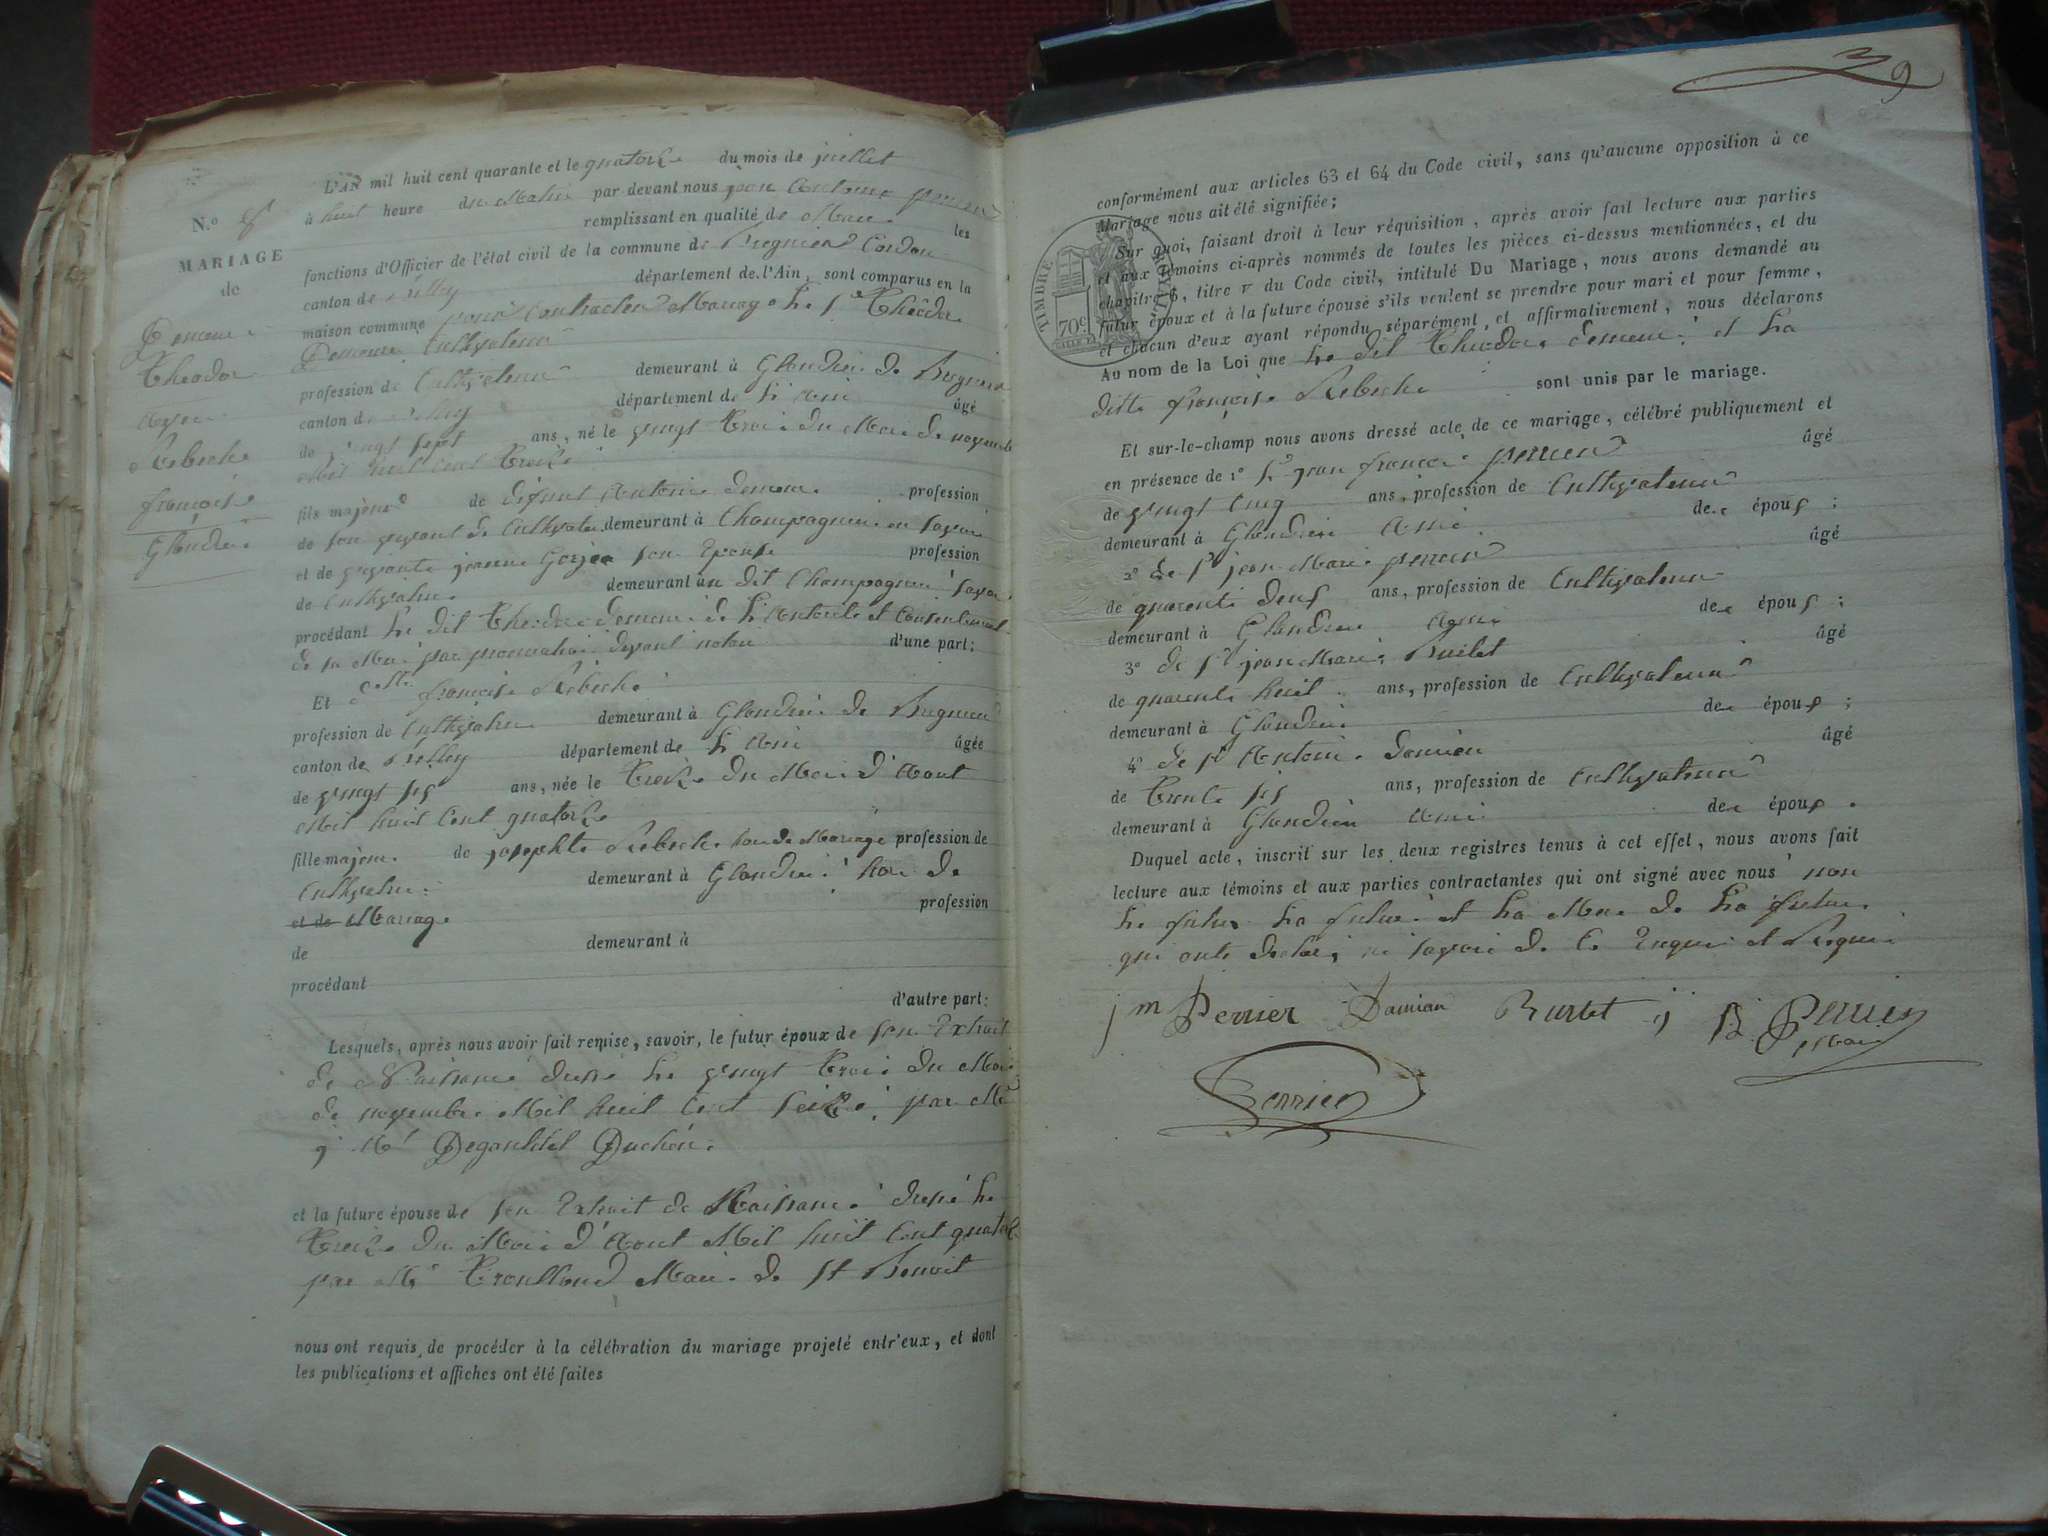 N.º 8
MARIAGE
de
Demeure
Theodore
avec
Rebecke
françoise
Glandieu
L'AN mil huit cent quarante et le quatorze du mois de juillet
à huit heure du Matin par devant nous jean antoine perrier
remplissant en qualité de Maire les
fonctions d'Officier de l'état civil de la commune de Bregnier Cordon
canton de Belley département de l'Ain, sont comparus en la
maison commune pour Contracter Mariage Le Sr Théodore
Demeure Cultivateur
profession de Cultivateur demeurant à Glandieu de Bregnier
canton de Belley département de L'ain âgé
de vingt sept ans, né le vingt trois du Mois de novembre
Mil huit Cent treize
fils majeur de défunt antoine demeure profession
de son vivant de Cultivateur demeurant à Champagneux en Savoie
et de vivante jeanne son Epouse profession
de Cultivatrice demeurant au dit Champagneux Savoie
procédant Le dit Theodore Demeure de L'autorité et Consentement
de sa Mère par procuration devant notaire d'une part;
Et Delle françoise Rebecke
profession de Cultivatrice demeurant à Glandieu de Bregnier
canton de Belley département de L'ain âgée
de vingt six ans, née le treize du Mois d'Aout
Mil huit Cent quatorze
fille majeure de josephte Rebecke hors de Mariage profession de
Cultivatrice demeurant à Glandieu hors de
et de Mariage profession
de demeurant à
procédant
d'autre part;
Lesquels, après nous avoir fait remise, savoir, le futur époux de son Extrait
de Naissance dressé Le vingt trois du Mois
de novembre Mil huit Cent seize par Mr
Duchêne
et la future épouse de son Extrait de Naissance dressé Le
treize du Mois d'Aout Mil huit Cent quatorze
par Mr Maire de St Benoit
nous ont requis de procéder à la célébration du mariage projeté entr'eux, et dont
les publications et affiches ont été faites
39
conformément aux articles 63 et 64 du Code civil, sans qu'aucune opposition à ce
Mariage nous ait été signifiée;
Sur quoi, faisant droit à leur réquisition, après avoir fait lecture aux parties
et aux témoins ci-après nommés de toutes les pièces ci-dessus mentionnées, et du
chapitre 6, titre v du Code civil, intitulé Du Mariage, nous avons demandé au
futur époux et à la future épouse s'ils veulent se prendre pour mari et pour femme,
et chacun d'eux ayant répondu séparément et affirmativement, nous déclarons
Au nom de la Loi que Le dit Theodore Demeure et La
ditte françoise Rebecke sont unis par le mariage.
TIMBRE ROYAL
70c
Et sur-le-champ nous avons dressé acte de ce mariage, célébré publiquement et
en présence de 1º Sr jean françois perrier âgé
de vingt Cinq ans, profession de Cultivateur
demeurant à Glandieu ami des époux;
2º de Sr jean Marie perrier âgé
de quarente deux ans, profession de Cultivateur
demeurant à Glandieu ami des époux;
3º de Sr jean Marie Burlet âgé
de quarente huit ans, profession de Cultivateur
demeurant à Glandieu des époux;
4º de Sr Antoine Damian âgé
de trente six ans, profession de Cultivateur
demeurant à Glandieu ami des époux.
Duquel acte, inscrit sur les deux registres tenus à cet effet, nous avons fait
lecture aux témoins et aux parties contractantes qui ont signé avec nous non
Le futur La future et La Mère de La future
qui ont déclaré ne savoir de Ce Enquis et Requis
j m Perrier Damian Burlet Perrier
Maire
Perrier